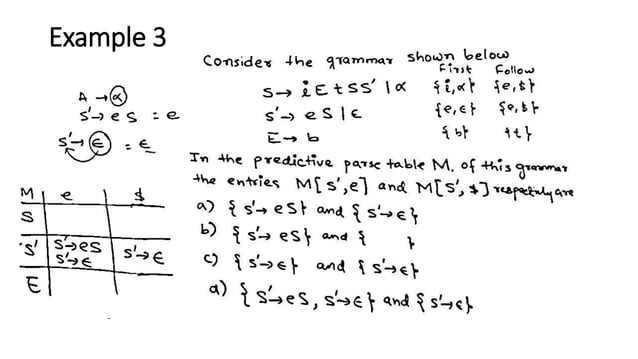 Example 3
Consider the grammar shown below
First Follow
S→ iEtSS' | α {i,α} {e,$}
S'→ eS | ε {e,ε} {e,$}
E→ b {b} {t}
A → α
S'→ e S = e
S'→ ε = ε
In the predictive parse table M, of this grammar
the entries M[S',e] and M[S',$] respectively are
a) {S'→ eS} and {S'→ε}
b) {S'→ eS} and { }
c) {S'→ε} and {S'→ε}
d) {S'→eS, S'→ε} and {S'→ε}
M e $
S
S' S'→eS S'→ε
S'→ε
E